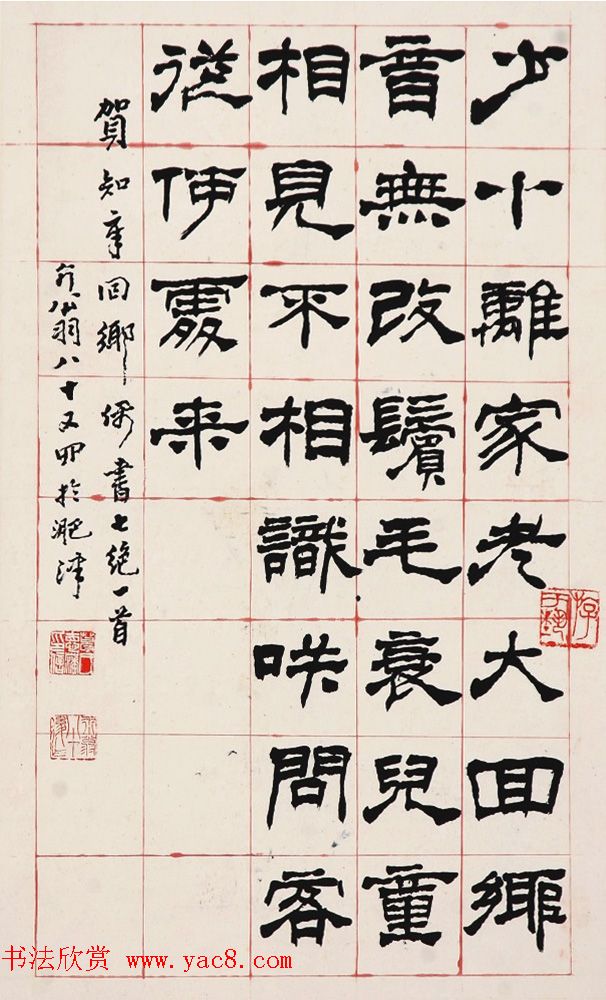 少小離家老大回鄉
音無改鬢毛衰兒童
相見不相識咲問客
從何處来
賀知章回鄉偶書七絕一首
翁八十又四於淝津
书法欣赏 www.yac8.com